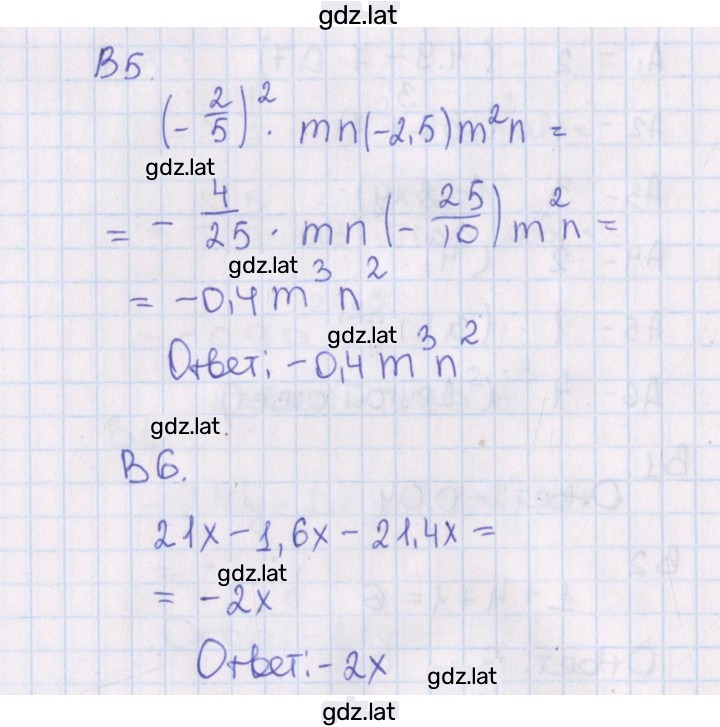 gdz.lat
В5.
(-2/5)²· mn(-2,5)m²n =
gdz.lat
= - 4/25 · mn(-25/10)m²n =
gdz.lat
= -0,4m³n²
gdz.lat
Ответ: -0,4m³n²
gdz.lat
В6.
21x-1,6x-21,4x=
gdz.lat
= -2x
Ответ: -2x
gdz.lat
gdz.lat